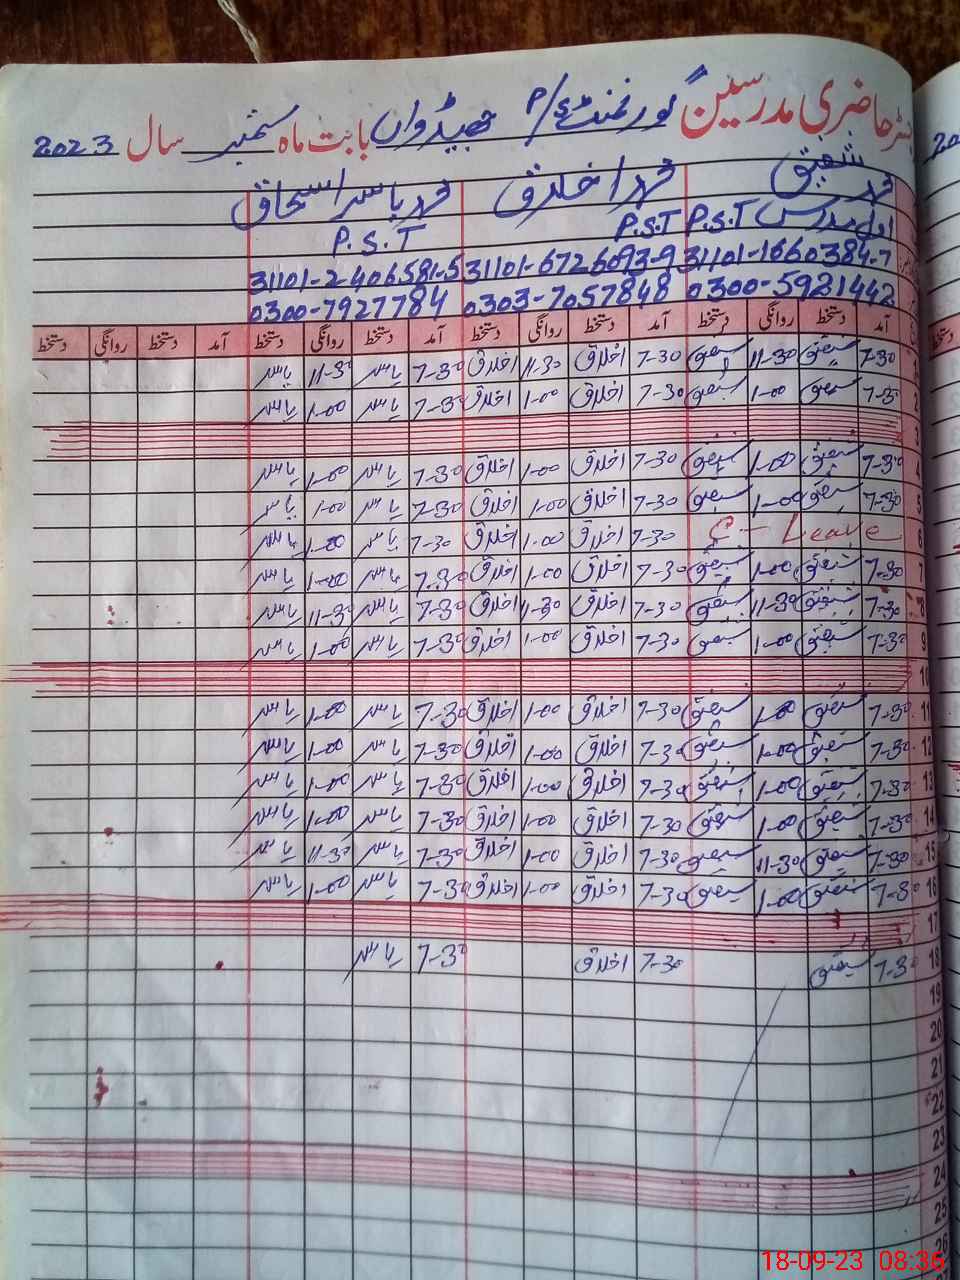 رجسٹر حاضری مدرسین گورنمنٹ P/S بابت ماہ ستمبر سال 2023
محمد شفیق محمد اخلاق محمد یاسر اسحاق
اول مدرس P.S.T P.S.T P.S.T
31101-1660384-7 31101-6726093-9 31101-2406581-5
0300-5921442 0303-7057848 0300-7927784
آمد دستخط روانگی دستخط آمد دستخط روانگی دستخط آمد دستخط روانگی دستخط آمد دستخط روانگی دستخط
1 7-30 شفیق 11-30 شفیق 7-30 اخلاق 11-30 اخلاق 7-30 یاسر 11-30 یاسر
2 7-30 شفیق 1-00 شفیق 7-30 اخلاق 1-00 اخلاق 7-30 یاسر 1-00 یاسر
3
4 7-30 شفیق 1-00 شفیق 7-30 اخلاق 1-00 اخلاق 7-30 یاسر 1-00 یاسر
5 7-30 شفیق 1-00 شفیق 7-30 اخلاق 1-00 اخلاق 7-30 یاسر 1-00 یاسر
6 C-Leave 7-30 اخلاق 1-00 اخلاق 7-30 یاسر 1-00 یاسر
7 7-30 شفیق 1-00 شفیق 7-30 اخلاق 1-00 اخلاق 7-30 یاسر 1-00 یاسر
8 7-30 شفیق 11-30 شفیق 7-30 اخلاق 11-30 اخلاق 7-30 یاسر 11-30 یاسر
9 7-30 شفیق 1-00 شفیق 7-30 اخلاق 1-00 اخلاق 7-30 یاسر 1-00 یاسر
10
11 7-30 شفیق 1-00 شفیق 7-30 اخلاق 1-00 اخلاق 7-30 یاسر 1-00 یاسر
12 7-30 شفیق 1-00 شفیق 7-30 اخلاق 1-00 اخلاق 7-30 یاسر 1-00 یاسر
13 7-30 شفیق 1-00 شفیق 7-30 اخلاق 1-00 اخلاق 7-30 یاسر 1-00 یاسر
14 7-30 شفیق 1-00 شفیق 7-30 اخلاق 1-00 اخلاق 7-30 یاسر 1-00 یاسر
15 7-30 شفیق 11-30 شفیق 7-30 اخلاق 1-00 اخلاق 7-30 یاسر 11-30 یاسر
16 7-30 شفیق 1-00 شفیق 7-30 اخلاق 1-00 اخلاق 7-30 یاسر 1-00 یاسر
17
18 7-30 شفیق 7-30 اخلاق 7-30 یاسر
19
20
21
22
23
24
25
26
18-09-23 08:36